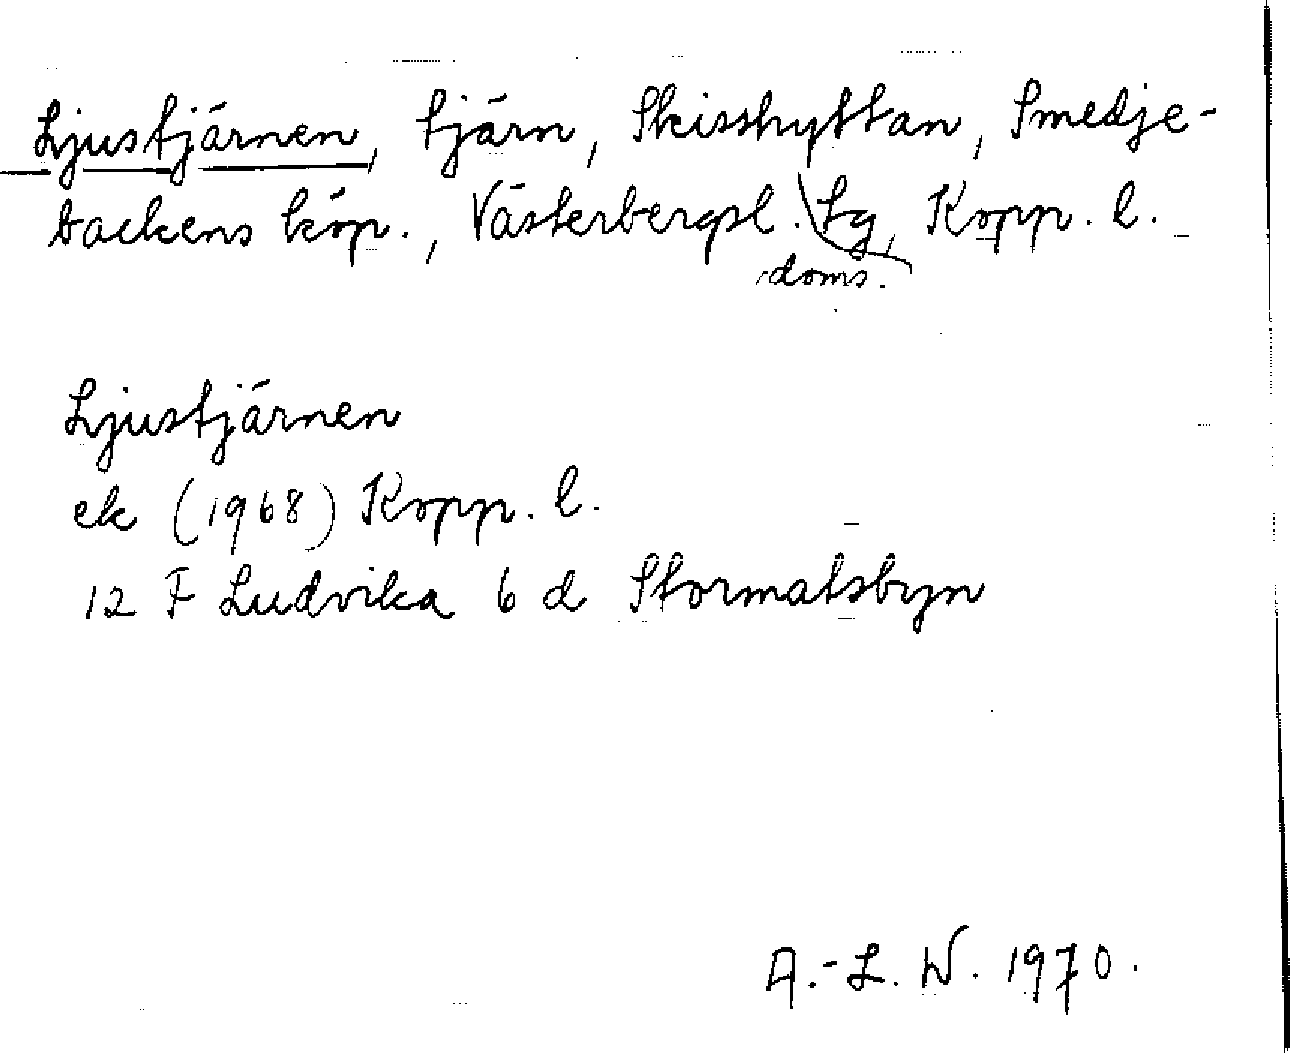 Ljustjärnen, tjärn, Skisshyttan, Smedje-
backens köp., Västerbergsl. tg, Kopp. l.
doms.
Ljustjärnen
ek (1968) Kopp. l.
12 F Ludvika 6 d Stormatsbyn
A.-L. W. 1970.